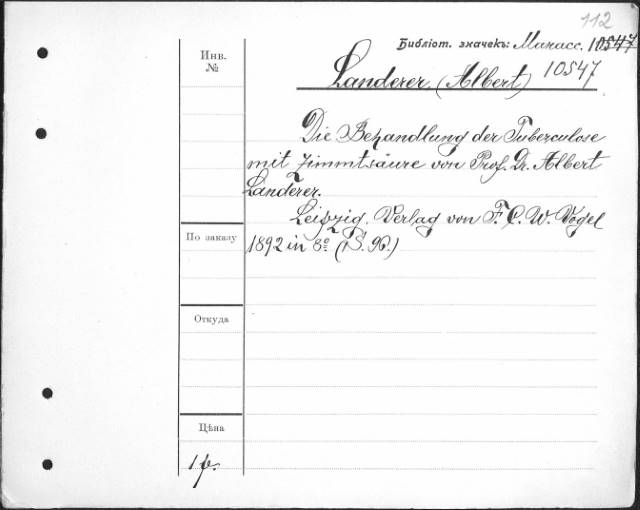 112
Библіот. значекъ: Манасс. 10547
Инв.
№
Landerer. (Albert) 10547
Die Behandlung der Tuberculose
mit Zimmtsäure von Prof. Dr. Albert
Landerer.
Leipzig. Verlag von F. C. W. Vogel
По заказу
1892 in 8º (S. 96.)
Откуда
Цѣна
1 р.